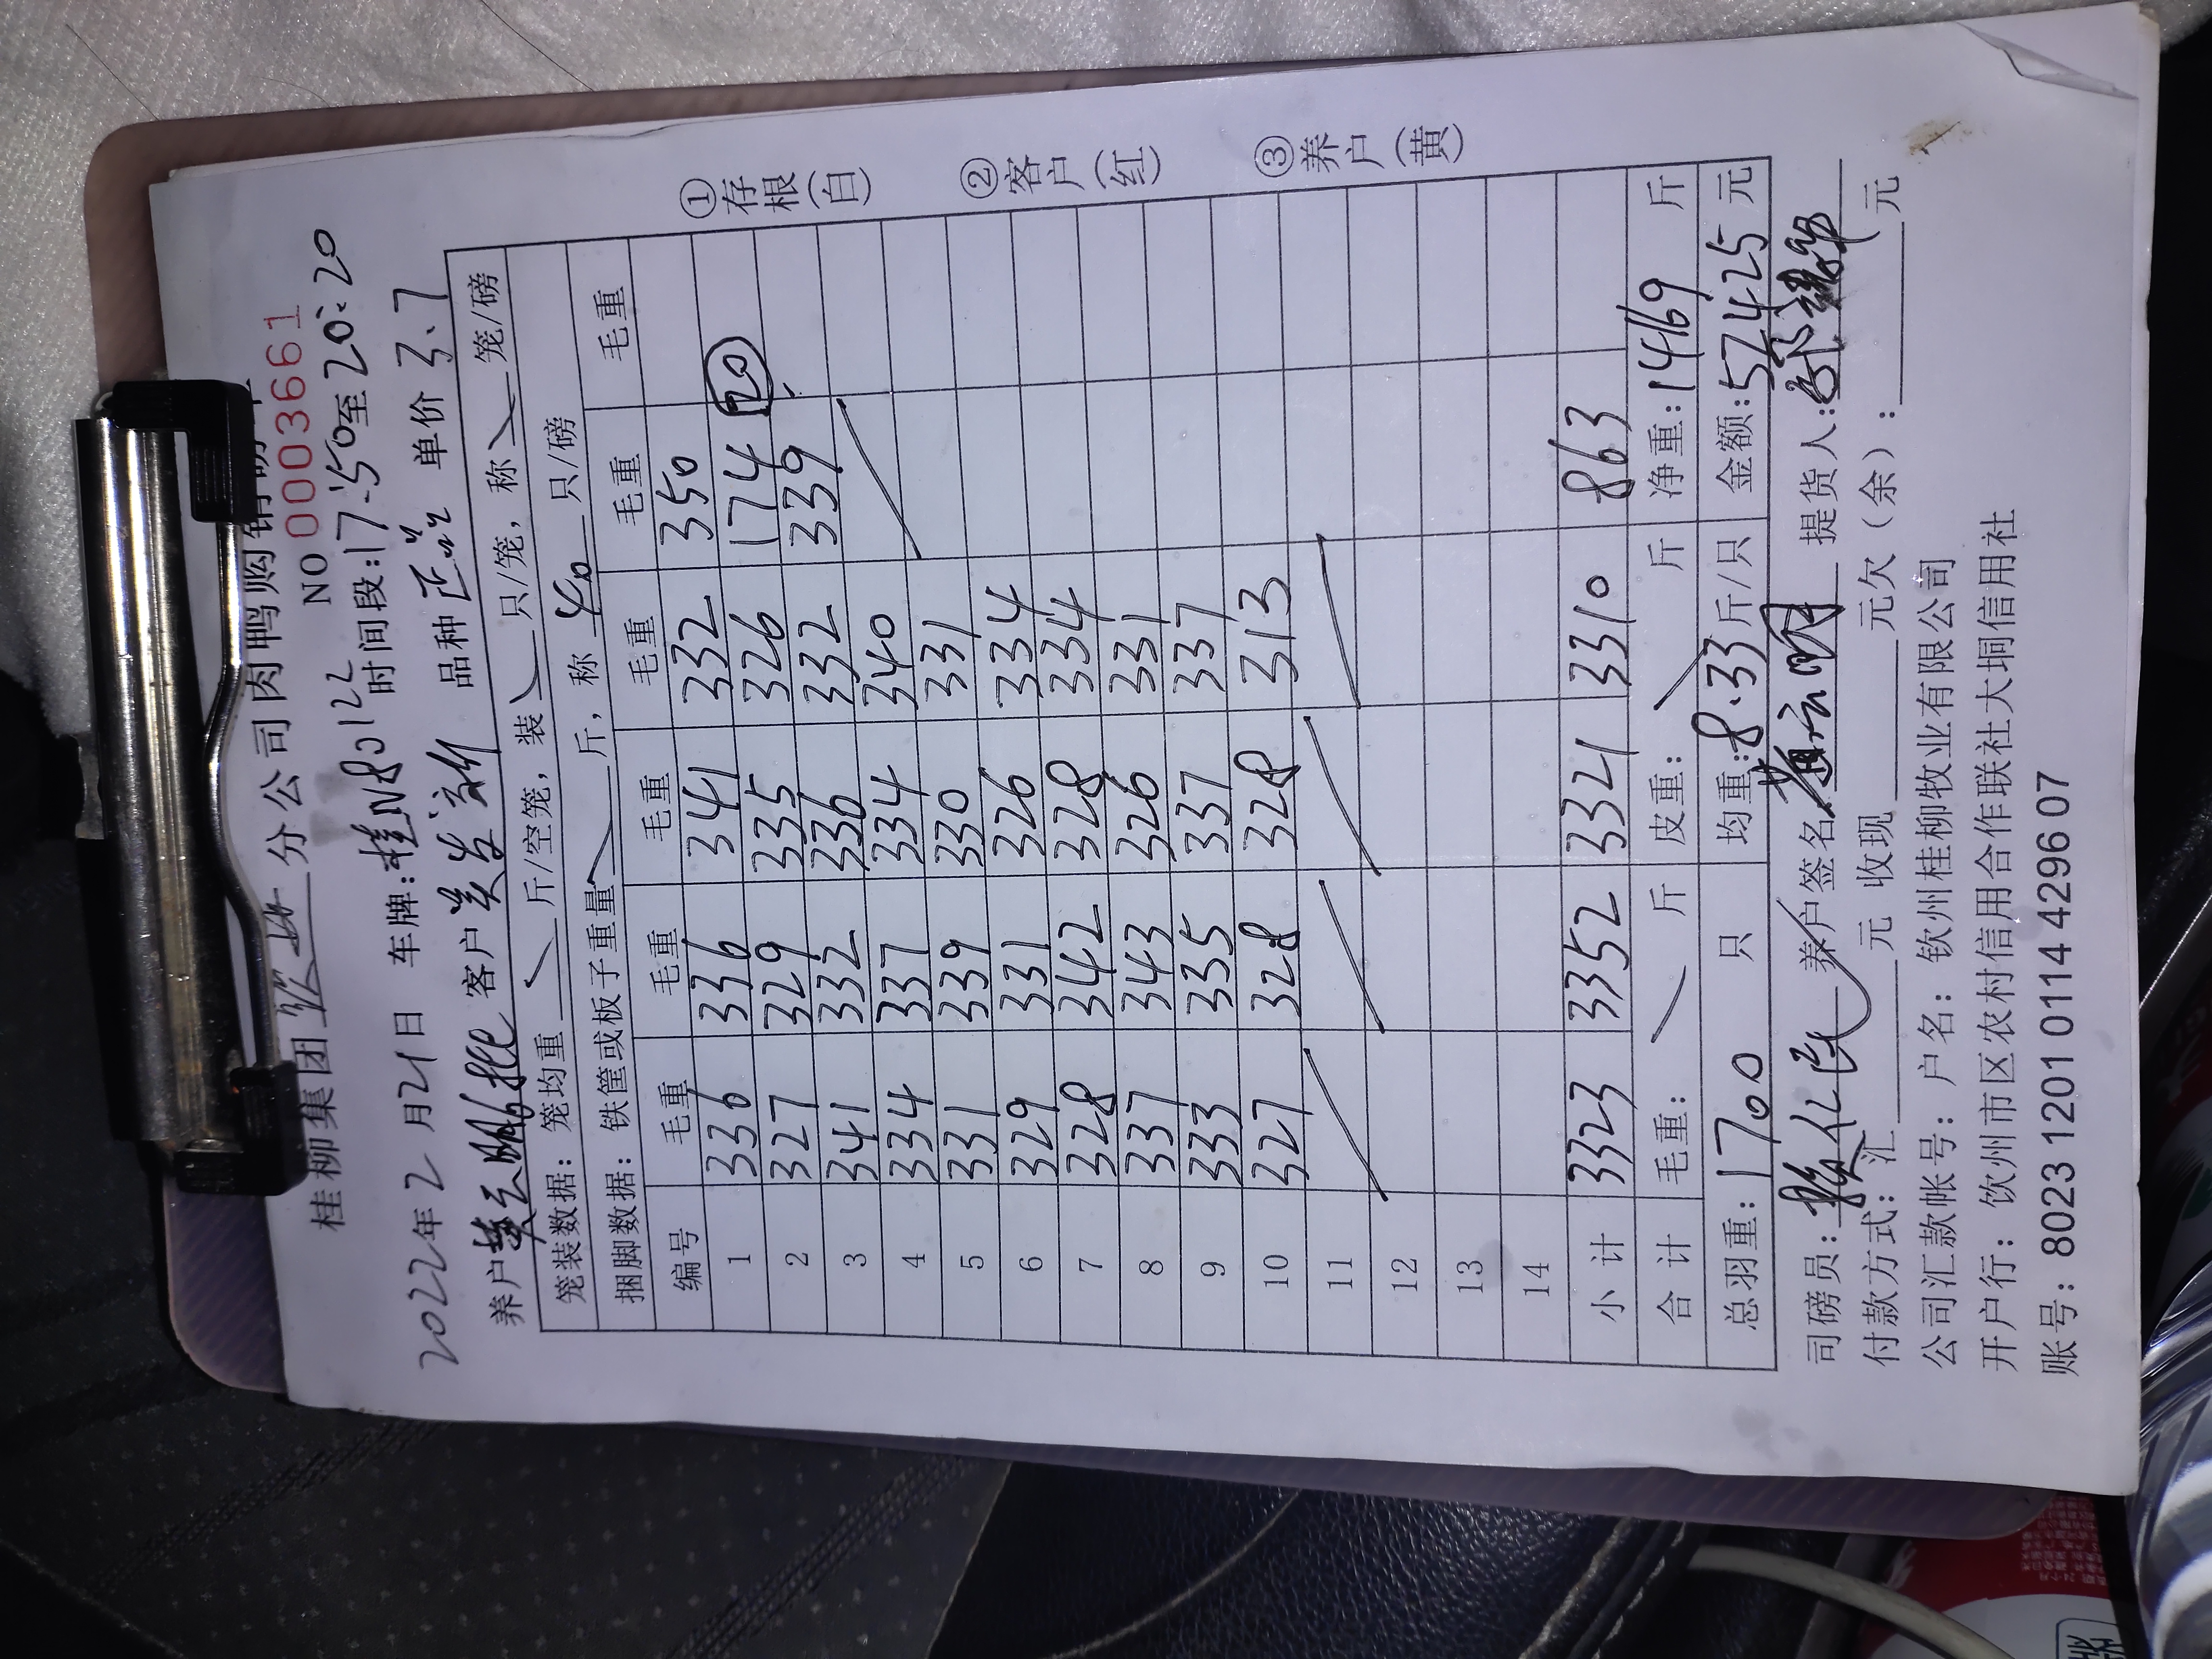 桂柳集团 分公司肉鸭购销磅单
NO 0003661
2022年2月21日 车牌:桂N80122 时间段:17:50至20:20
养户 客户 品种 单价 3.7
笼装数据: 笼均重 斤/空笼, 装 只/笼, 称 笼/磅
捆脚数据: 铁筐或板子重量 斤, 称 40 只/磅
编号 毛重 毛重 毛重 毛重 毛重 毛重
1 336 336 341 332 350
2 327 329 335 326 174 20
3 341 332 336 332 339
4 334 337 334 340
5 331 339 330 331
6 329 331 326 334
7 328 342 328 334
8 337 343 326 331
9 333 335 337 337
10 327 328 328 313
11
12
13
14
小计 3323 3352 3321 3310 863
合计 毛重: 斤 皮重: 斤 净重:14169 斤
总羽重:1700 只 均重:8.33斤/只 金额:52425元
司磅员: 养户签名 提货人:
付款方式: 汇 元 收现 元欠(余): 元
公司汇款帐号: 户名: 钦州桂柳牧业有限公司
开户行: 钦州市区农村信用合作联社大垌信用社
账号: 8023 1201 0114 4296 07
①存根(白)
②客户(红)
③养户(黄)